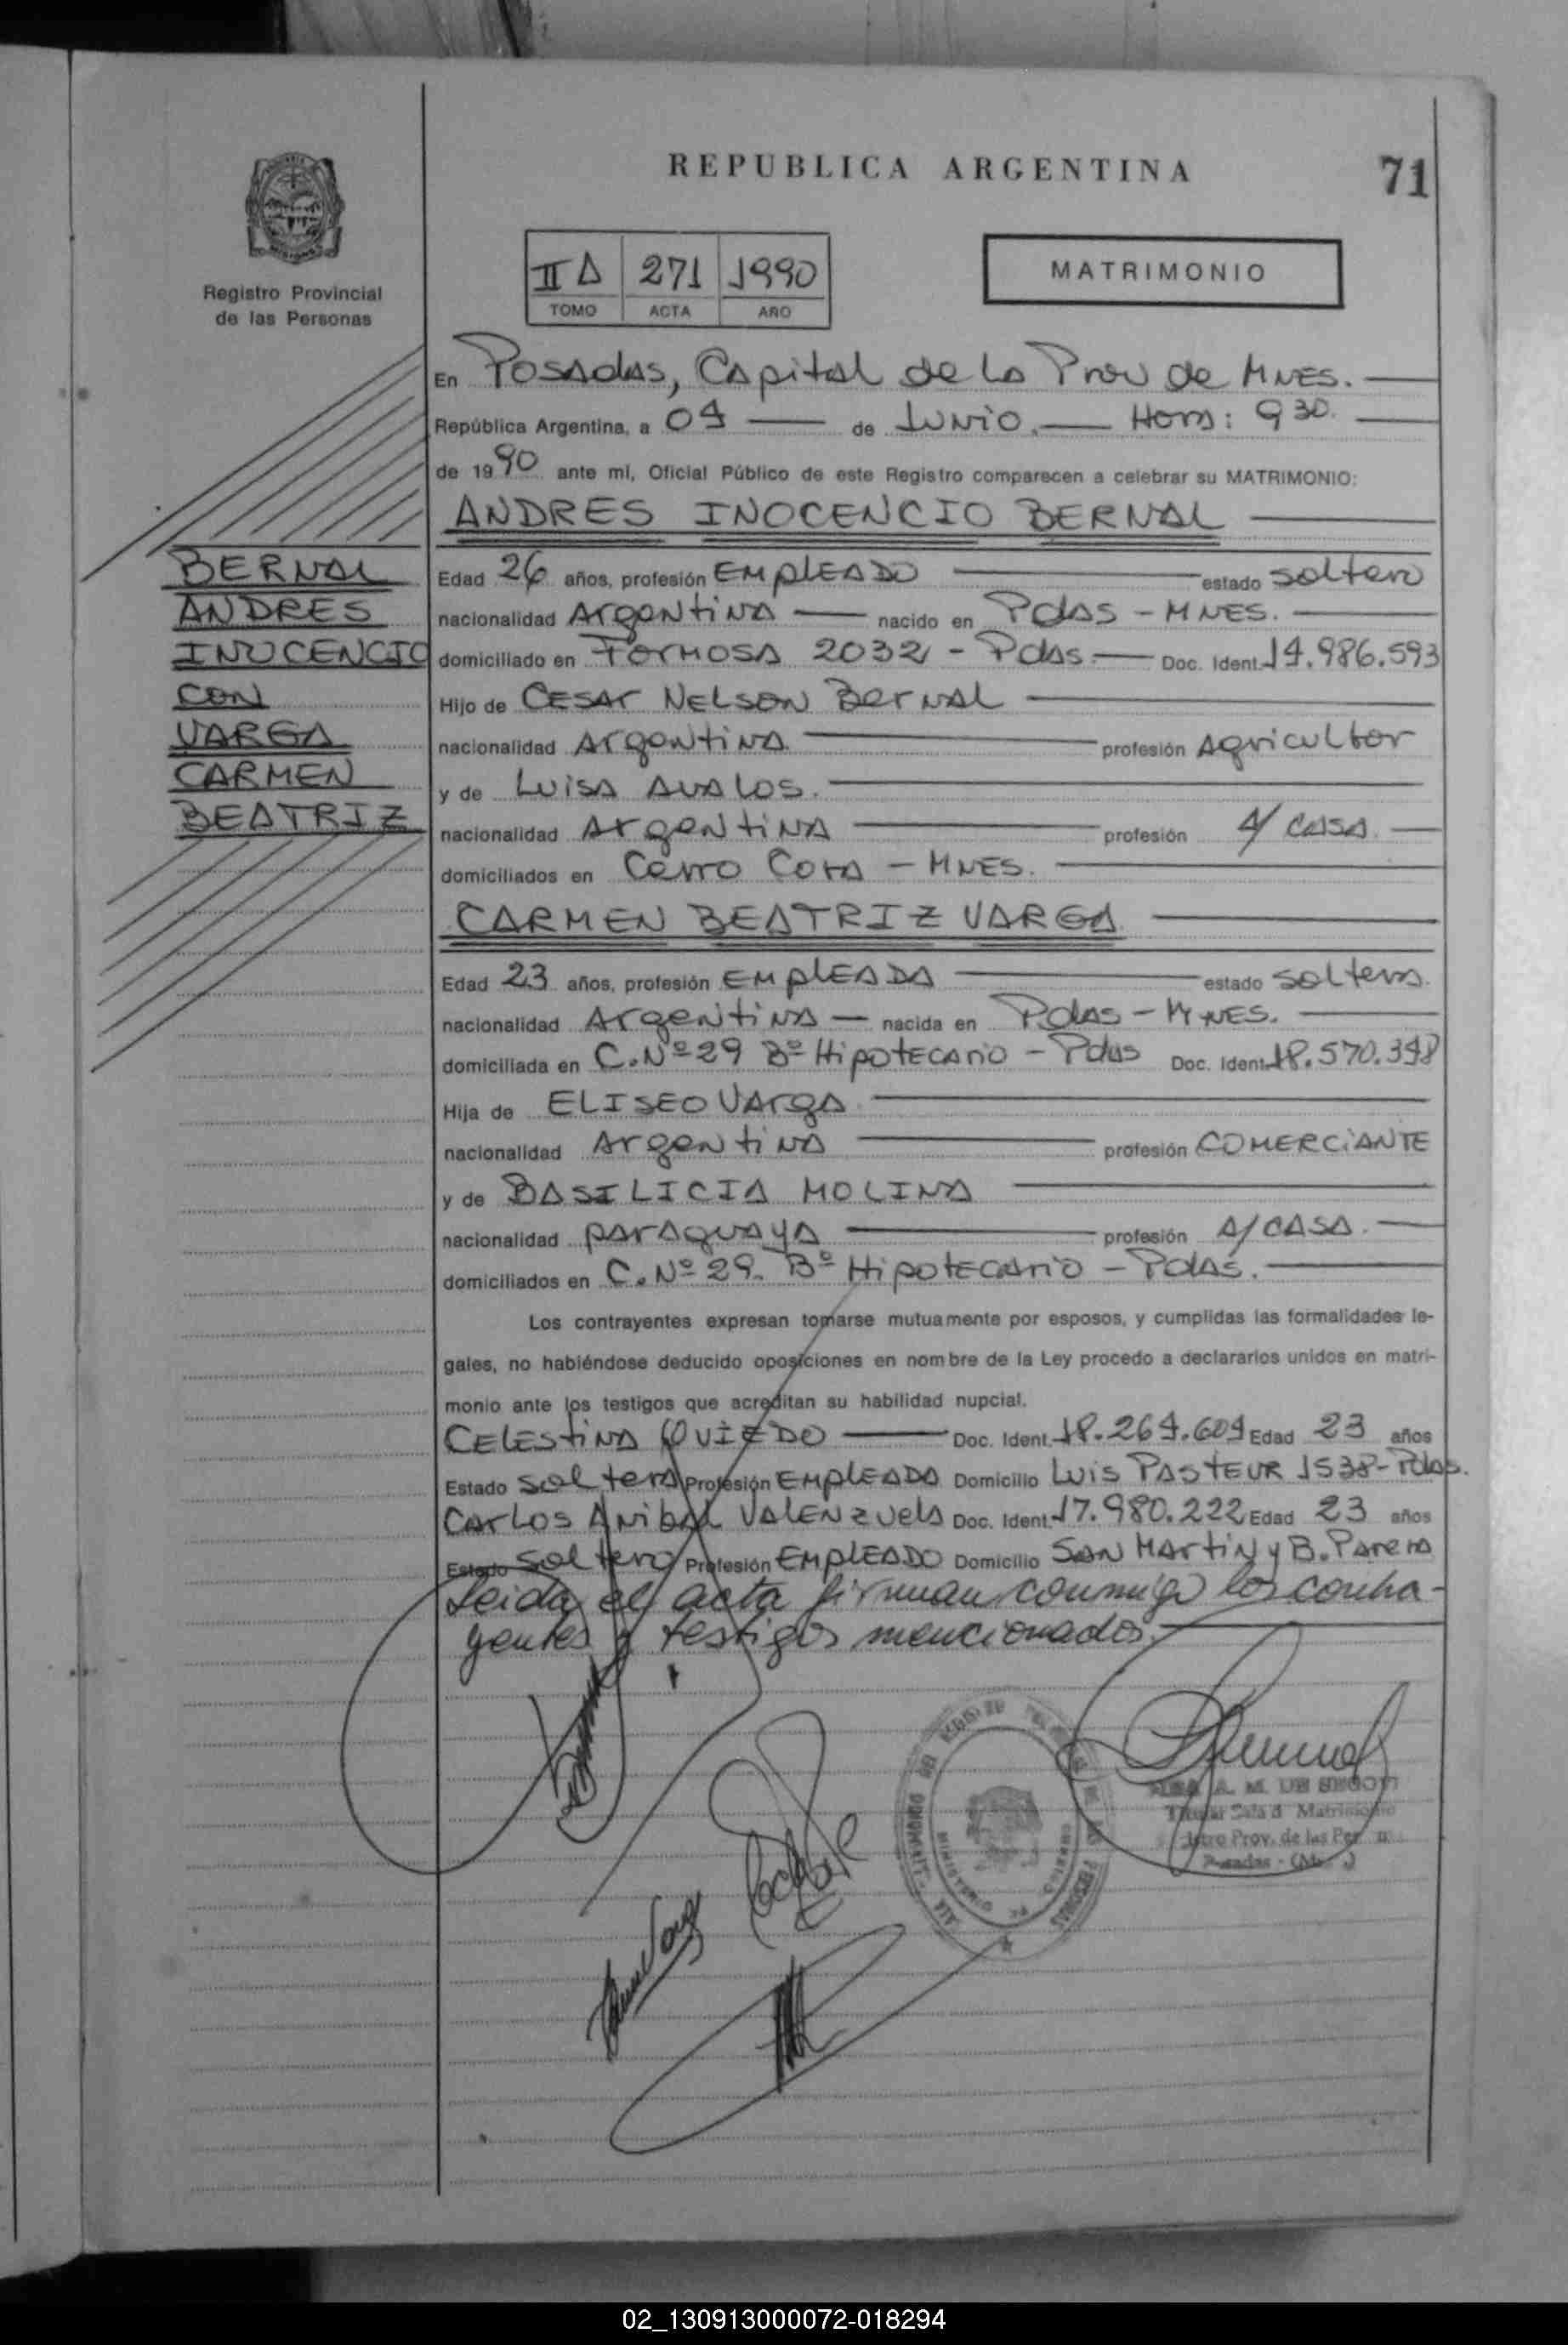 REPUBLICA ARGENTINA
71
Registro Provincial
de las Personas
II A 271 1990
TOMO ACTA AÑO
MATRIMONIO
En Posadas, Capital de la Prov de Mnes.
República Argentina, a 04 de Junio. Hora: 9 30.
de 1990 ante mi, Oficial Público de este Registro comparecen a celebrar su MATRIMONIO:
ANDRES INOCENCIO BERNAL
BERNAL
ANDRES
INOCENCIO
CON
VARGA
CARMEN
BEATRIZ
Edad 26 años, profesión EMPLEADO estado soltero
nacionalidad Argentina nacido en Pdas - MNES.
domiciliado en FORMOSA 2032 - Pdas. Doc. Ident. 14.986.593
Hijo de CESAR NELSON BERNAL
nacionalidad Argentina profesión Agricultor
y de LUISA AVALOS.
nacionalidad Argentina profesión A/ CASA
domiciliados en Cerro Cora - MNES.
CARMEN BEATRIZ VARGA
Edad 23 años, profesión EMPLEADA estado soltera.
nacionalidad Argentina nacida en Pdas - MNES.
domiciliada en C. Nº 29 Bº Hipotecario - Pdas Doc. Ident. 18.570.398
Hija de ELISEO VARGA
nacionalidad Argentina profesión COMERCIANTE
y de BASILICIA MOLINA
nacionalidad paraguaya profesión A/ CASA.
domiciliados en C. Nº 29. Bº Hipotecario - Pdas.
Los contrayentes expresan tomarse mutuamente por esposos, y cumplidas las formalidades le-
gales, no habiéndose deducido oposiciones en nombre de la Ley procedo a declararlos unidos en matri-
monio ante los testigos que acreditan su habilidad nupcial.
CELESTINA OVIEDO Doc. Ident. 18.264.604 Edad 23 años
Estado soltera Profesión EMPLEADA Domicilio Luis PASTEUR 1538 - Pdas.
CARLOS ANIBAL VALENZUELA Doc. Ident. 17.980.222 Edad 23 años
Estado soltero Profesión EMPLEADO Domicilio SAN MARTIN y B. Parera
Leida el acta firman conmigo los contra-
yentes y testigos mencionados.
A. M. DE
Titular Sala d Matrimonio
Prov. de las
Posadas
02_130913000072-018294